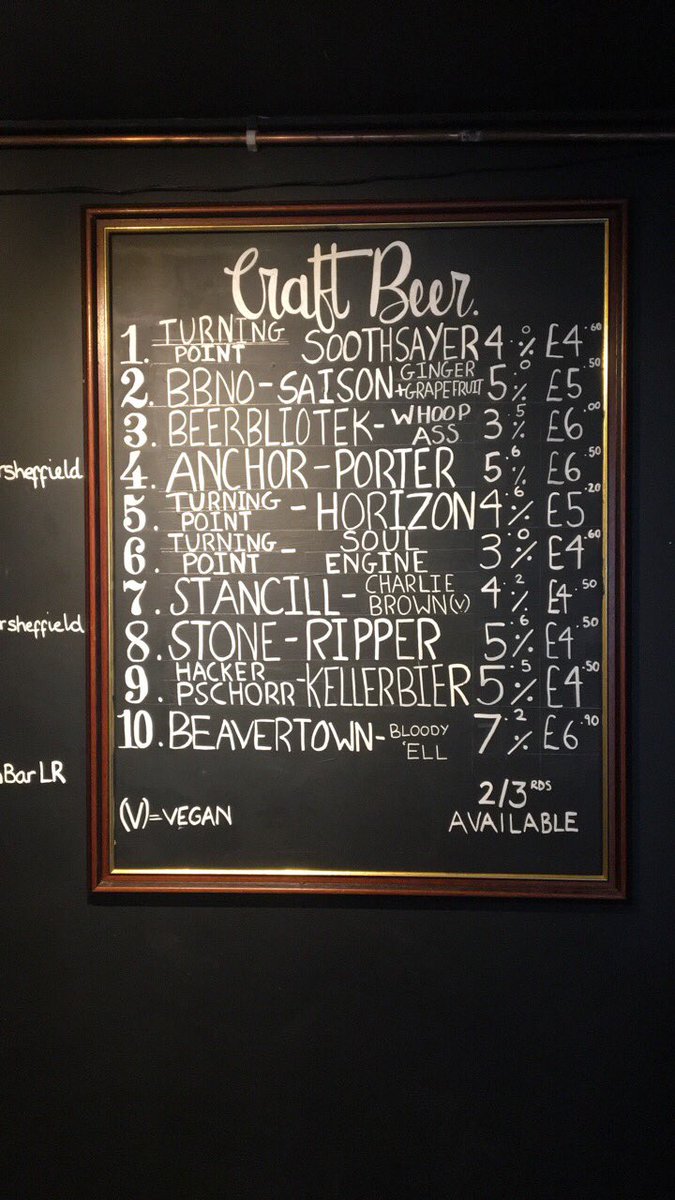 Craft Beer.
1. TURNING POINT SOOTHSAYER 4.0% £4.60
2. BBNO - SAISON GINGER + GRAPEFRUIT 5.0% £5.50
3. BEERBLIOTEK - WHOOP ASS 3.5% £6.00
4. ANCHOR - PORTER 5.6% £6.50
5. TURNING POINT - HORIZON 4.6% £5.20
6. TURNING POINT - SOUL ENGINE 3.0% £4.60
7. STANCILL - CHARLIE BROWN (V) 4.2% £4.50
8. STONE - RIPPER 5.6% £4.50
9. HACKER PSCHORR - KELLERBIER 5.5% £4.50
10. BEAVERTOWN - BLOODY 'ELL 7.2% £6.90
(V) = VEGAN
2/3 RDS AVAILABLE
rsheffield
rsheffield
Bar LR